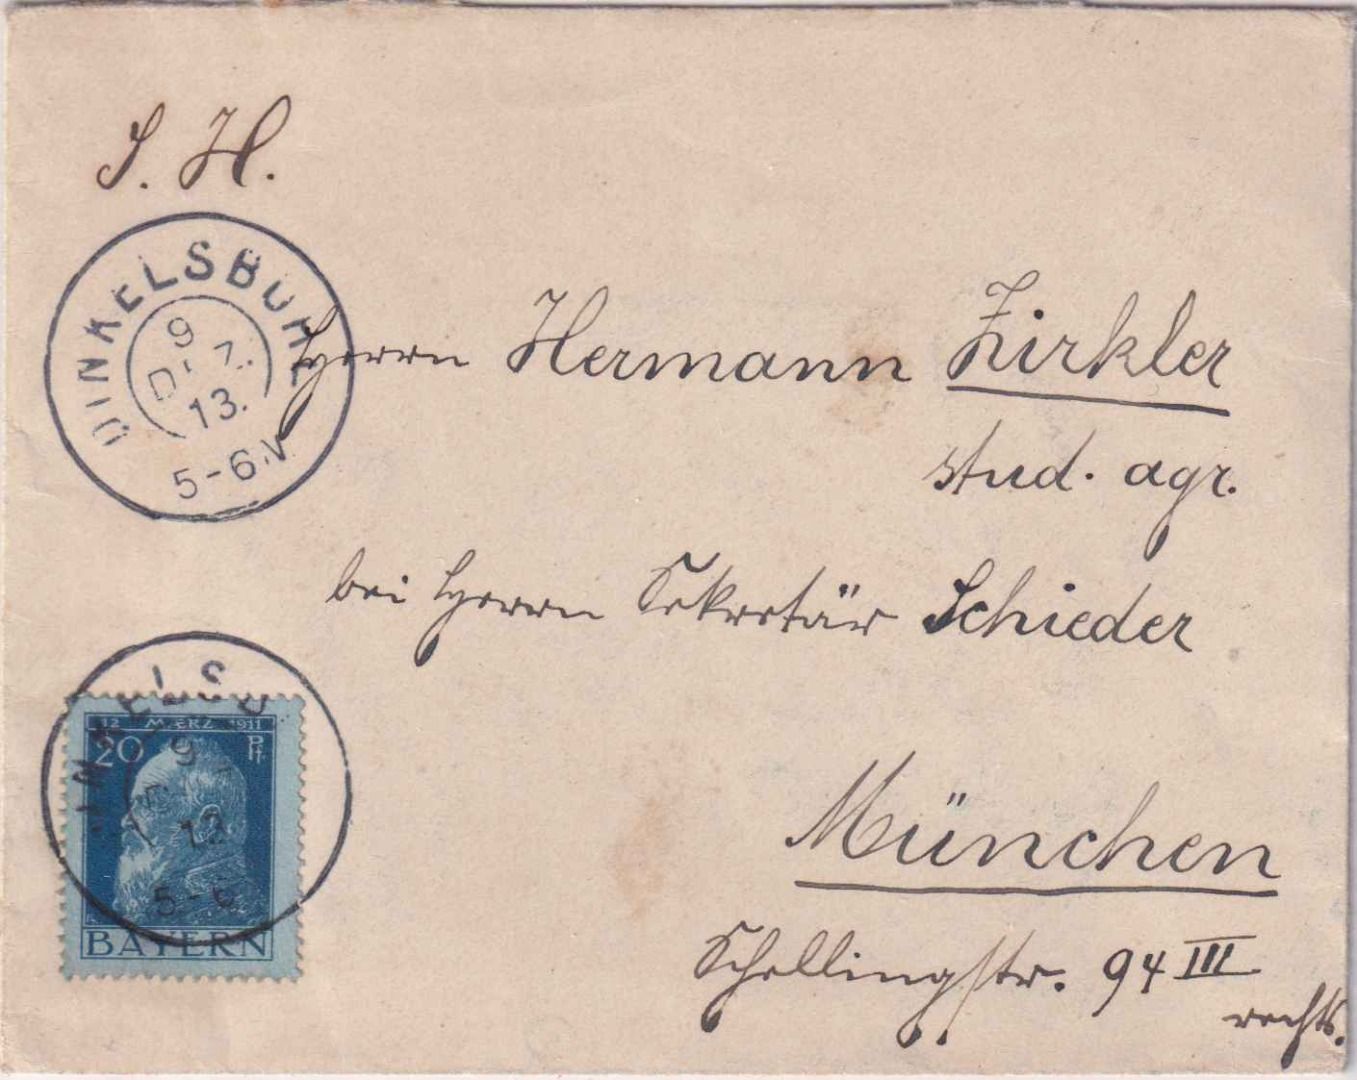 S. H.
DINKELSBÜHL
9
DEZ.
13.
5-6.V
Herrn Hermann Zirkler
stud. agr.
bei Herrn Sekretär Schieder
12 MÆRZ 1911
20 Pf.
9
13
5-6
BAYERN
München
Schellingstr. 94 III
rechts.